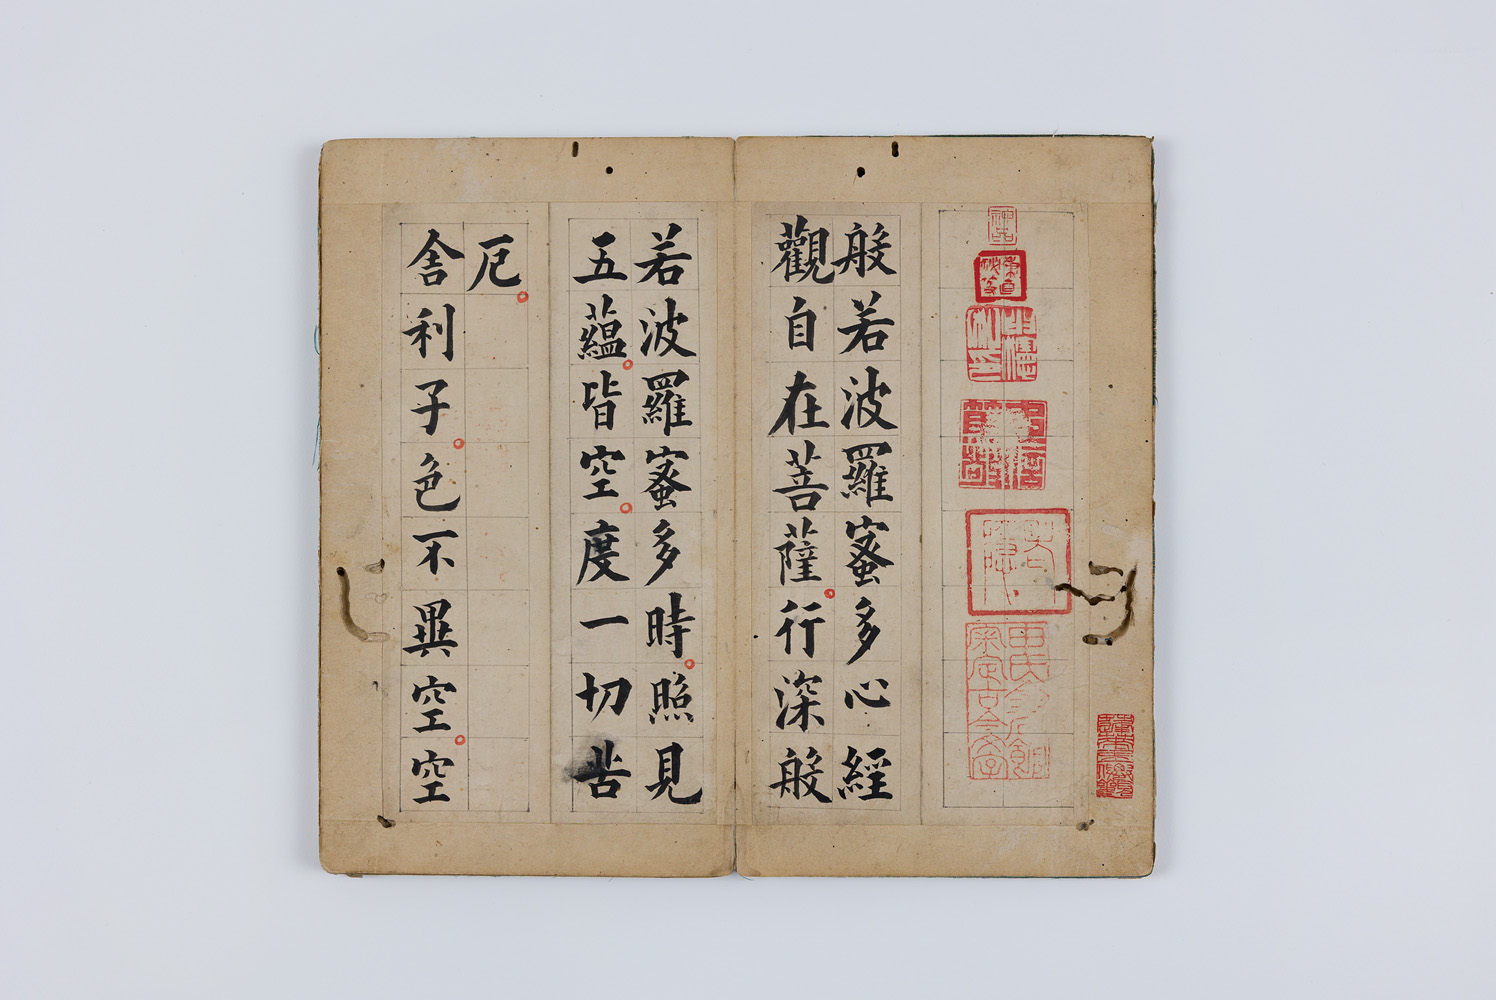 般若波羅蜜多心經
觀自在菩薩行深般
若波羅蜜多時照見
五蘊皆空度一切苦
厄
舍利子色不異空空